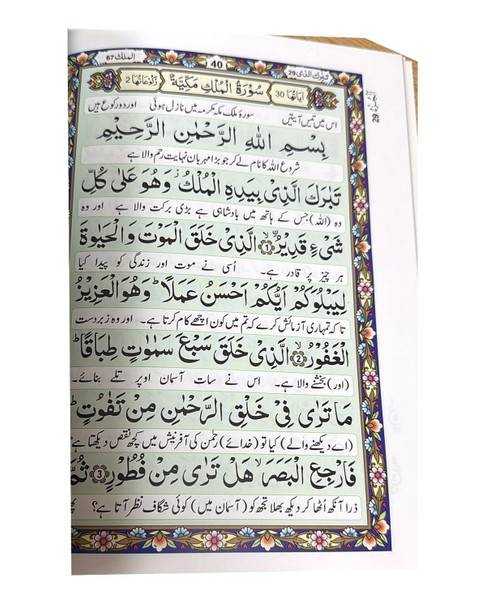 تبرك الذي ٢٩
40
الملك ٦٧
اٰيَاتُهَا 30
سُوْرَةُ الْمُلْكِ مَكِّيَّةٌ
رُكُوْعَاتُهَا 2
الجزء 29
اس میں تیس آیتیں سورۂ ملک مکہ مکرمہ میں نازل ہوئی اور دو رکوع ہیں
بِسْمِ اللّٰهِ الرَّحْمٰنِ الرَّحِيْمِ
شروع اللہ کا نام لے کر جو بڑا مہربان نہایت رحم والا ہے
تَبٰرَكَ الَّذِيْ بِيَدِهِ الْمُلْكُ ؗ وَهُوَ عَلٰى كُلِّ
وہ (اللہ) جس کے ہاتھ میں بادشاہی ہے بڑی برکت والا ہے اور وہ
شَيْءٍ قَدِيْرُ ۙ‏1 الَّذِيْ خَلَقَ الْمَوْتَ وَالْحَيٰوةَ
ہر چیز پر قادر ہے۔ اُسی نے موت اور زندگی کو پیدا کیا
لِيَبْلُوَكُمْ اَيُّكُمْ اَحْسَنُ عَمَلًا ؕ وَهُوَ الْعَزِيْزُ
تاکہ تمہاری آزمائش کرے کہ تم میں کون اچھے کام کرتا ہے۔ اور وہ زبردست
الْغَفُوْرُ ۙ‏2 الَّذِيْ خَلَقَ سَبْعَ سَمٰوٰتٍ طِبَاقًا ؕ
(اور) بخشنے والا ہے۔ اس نے سات آسمان اوپر تلے بنائے۔
مَا تَرٰى فِيْ خَلْقِ الرَّحْمٰنِ مِنْ تَفٰوُتٍ ؕ
(اے دیکھنے والے) کیا تو (خدائے) رحمٰن کی آفرینش میں کچھ نقص دیکھتا ہے
فَارْجِعِ الْبَصَرَ ۙ هَلْ تَرٰى مِنْ فُطُوْرٍ 3 ثُمَّ
ذرا آنکھ اُٹھا کر دیکھ بھلا تجھ کو (آسمان میں) کوئی شگاف نظر آتا ہے؟